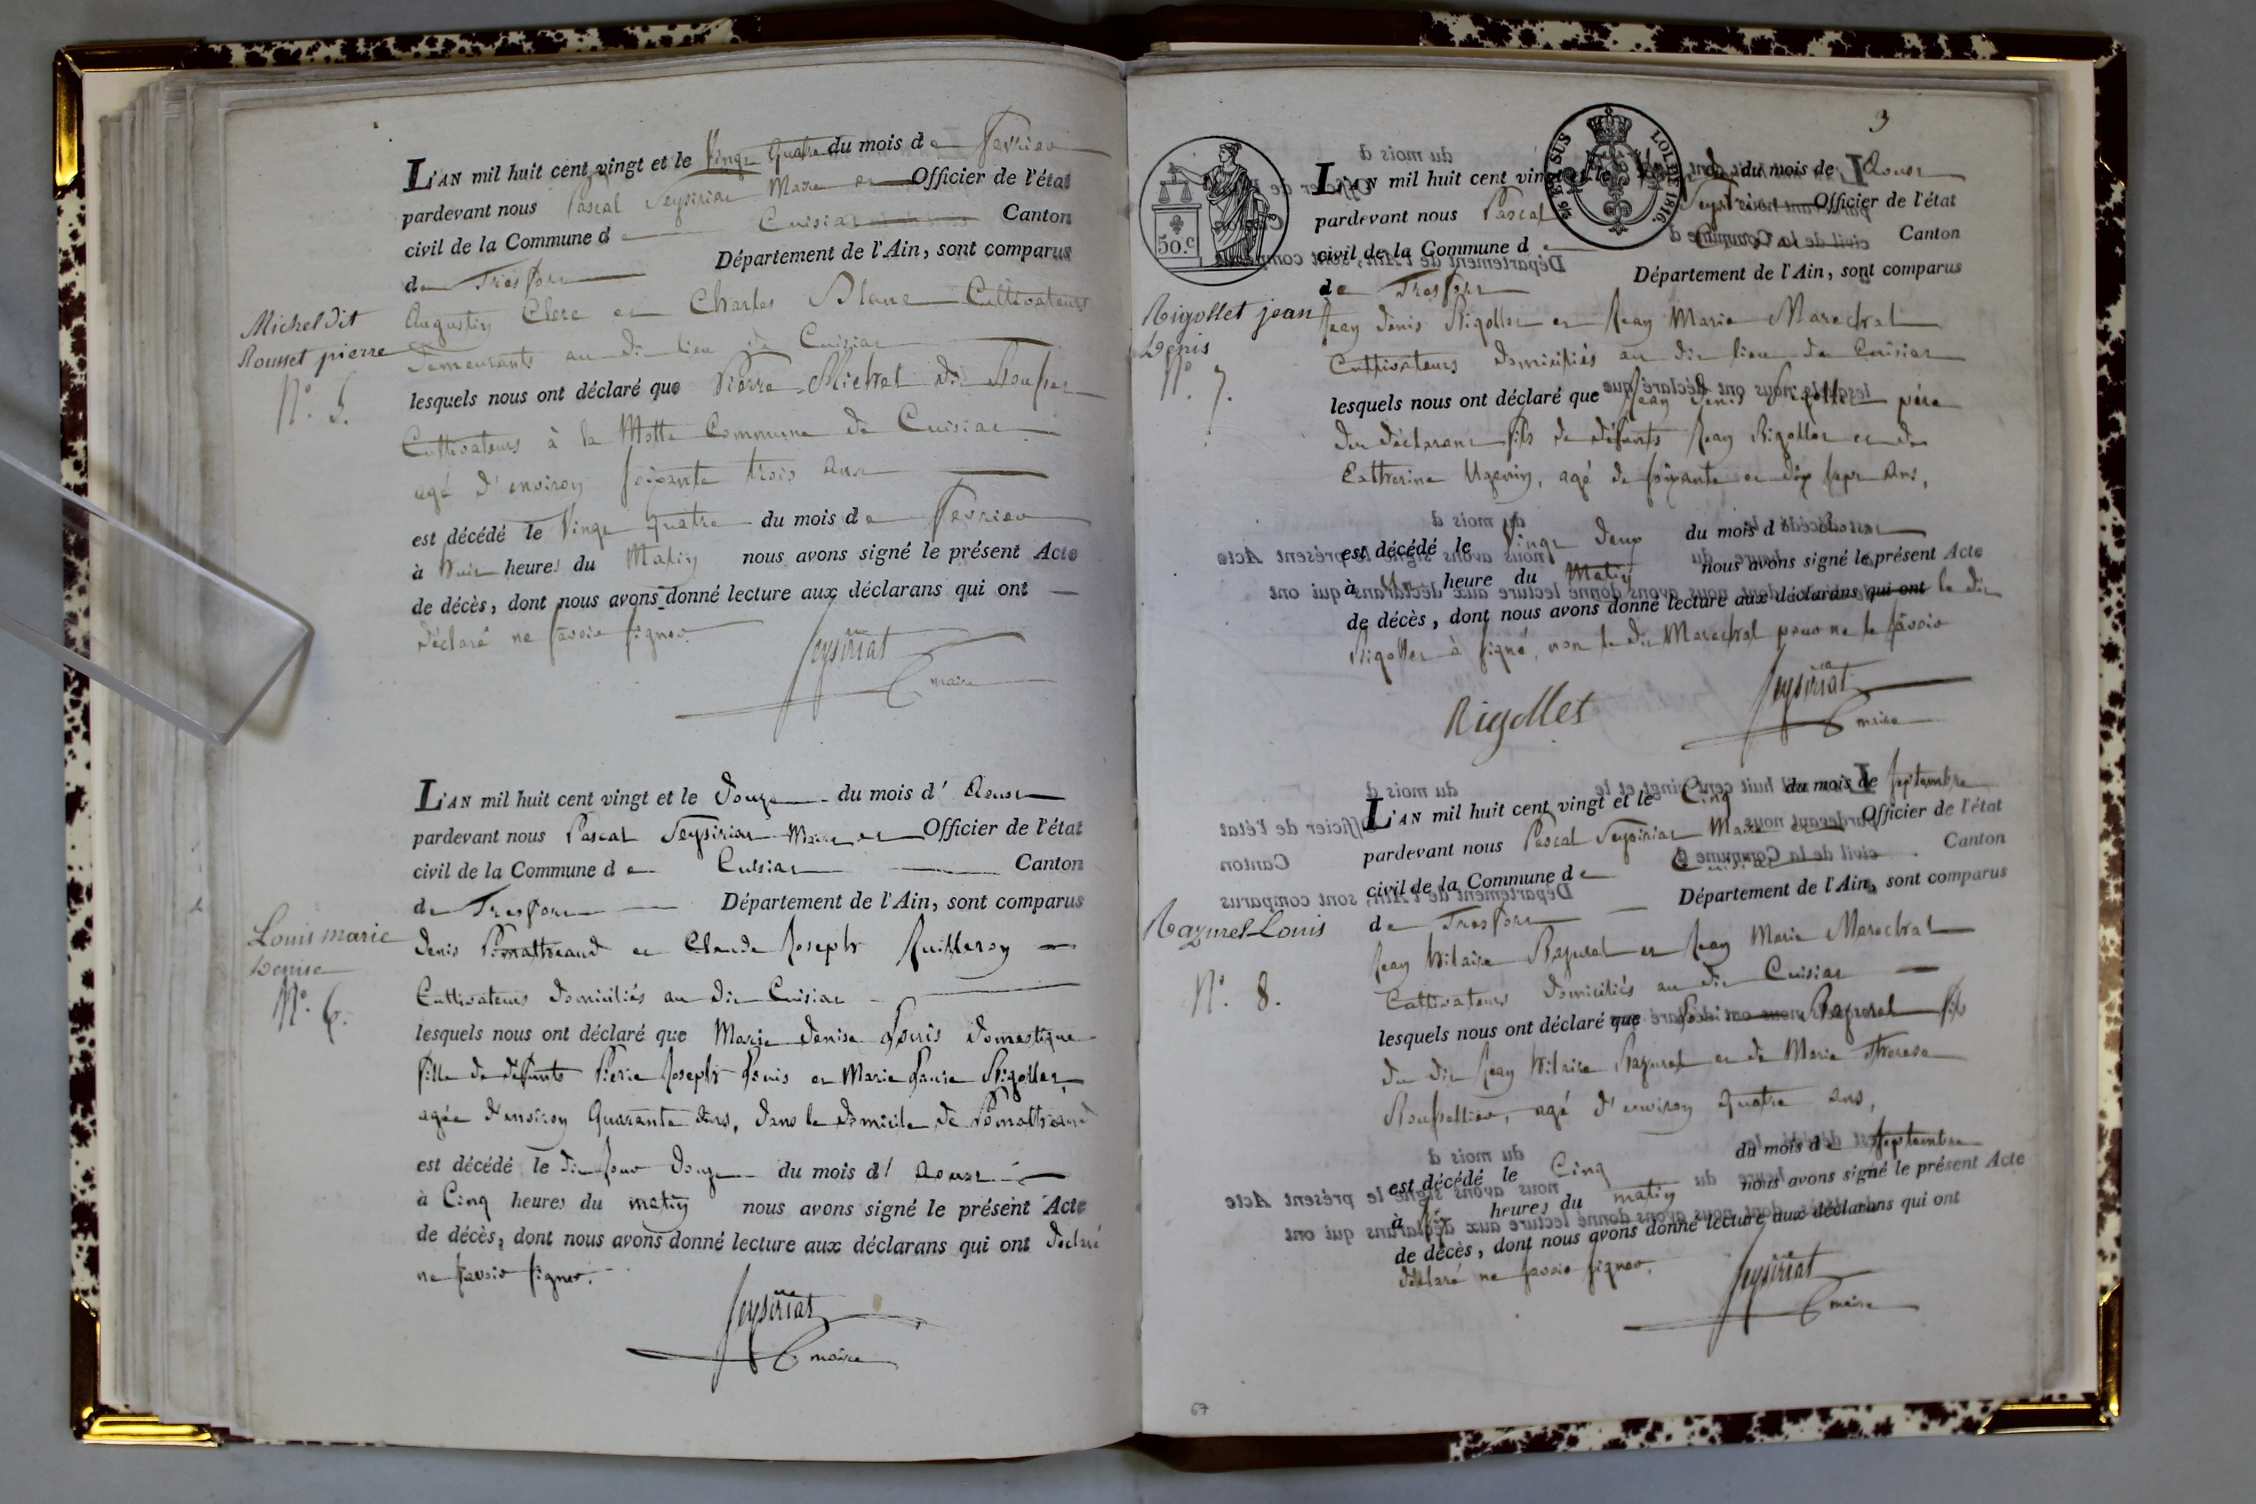 L'AN mil huit cent vingt et le Vingt Quatre du mois de Fevrier
pardevant nous Pascal Seysiriat Maire et Officier de l'état
civil de la Commune de Cuisiat Canton
de Tresfort Département de l'Ain, sont comparus
Michel dit
Rousset pierre
N.º 5.
Augustin Clerc et Charles Blanc Cultivateurs
demeurants au dit lieu de Cuisiat
lesquels nous ont déclaré que Pierre Michel dit Rousset
Cultivateurs à la Motte Commune de Cuisiat
agé d'environ soixante trois ans
est décédé le Vingt quatre du mois de Fevrier
à huit heures du Matin nous avons signé le présent Acte
de décès, dont nous avons donné lecture aux déclarans qui ont
déclaré ne savoir signer.
Seysiriat
maire
L'AN mil huit cent vingt et le douze du mois d'Aoust
pardevant nous Pascal Seysiriat Maire et Officier de l'état
civil de la Commune de Cuisiat Canton
de Tresfort Département de l'Ain, sont comparus
Louis marie
Denise
N.º 6.
denis Pomathreaud et Claude Joseph Juilleron
Cultivateurs domiciliés au dit Cuisiat
lesquels nous ont déclaré que Marie denise Louis domestique
fille de défunts Pierre Joseph Louis et Marie Laure Rigollet,
agée d'environ Quarante ans, dans le domicile de Pomathreaud
est décédé le dit jour douze du mois d'Aoust
à Cinq heures du matin nous avons signé le présent Acte
de décès, dont nous avons donné lecture aux déclarans qui ont déclaré
ne savoir signer.
Seysiriat
maire
3
50.c
SUS LOI DE 1816.
L'AN mil huit cent vingt et le du mois de Aoust
pardevant nous Pascal Seysiriat Officier de l'état
civil de la Commune de Canton
de Tresfort Département de l'Ain, sont comparus
Rigollet jean
Denis
N.º 7.
Jean denis Rigollet et Jean Marie Marechal
Cultivateurs domiciliés au dit lieu de Cuisiat
lesquels nous ont déclaré que Jean denis Rigollet père
du déclarant fils de défunts Jean Rigollet et de
Catherine Ugenin, agé de soixante et dix sept ans,
est décédé le Vingt deux du mois d'Aoust
à Une heure du Matin nous avons signé le présent Acte
de décès, dont nous avons donné lecture aux déclarans qui ont le dit
Rigollet à signé, non le dit Marechal pour ne le savoir
Rigollet
Seysiriat
maire
L'AN mil huit cent vingt et le Cinq du mois de Septembre
pardevant nous Pascal Seysiriat Maire et Officier de l'état
civil de la Commune de Cuisiat Canton
de Tresfort Département de l'Ain, sont comparus
Razurel Louis
N.º 8.
Jean hilaire Razurel et Jean Marie Marechal
Cultivateurs domiciliés au dit Cuisiat
lesquels nous ont déclaré que Louis Razurel fils
du dit Jean hilaire Razurel et de Marie Therese
Roussellier, agé d'environ quatre ans,
est décédé le Cinq du mois de Septembre
à six heures du matin nous avons signé le présent Acte
de décès, dont nous avons donné lecture aux déclarans qui ont
déclaré ne savoir signer.
Seysiriat
maire
67